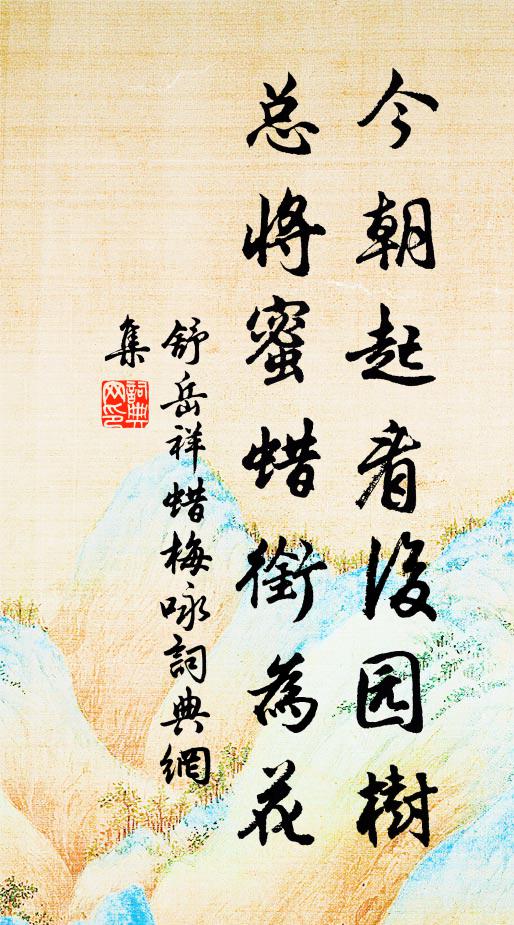 今朝起看後园樹
总將蜜蜡銜為花
舒岳祥蜡梅咏詞典網
集
詞典
网印